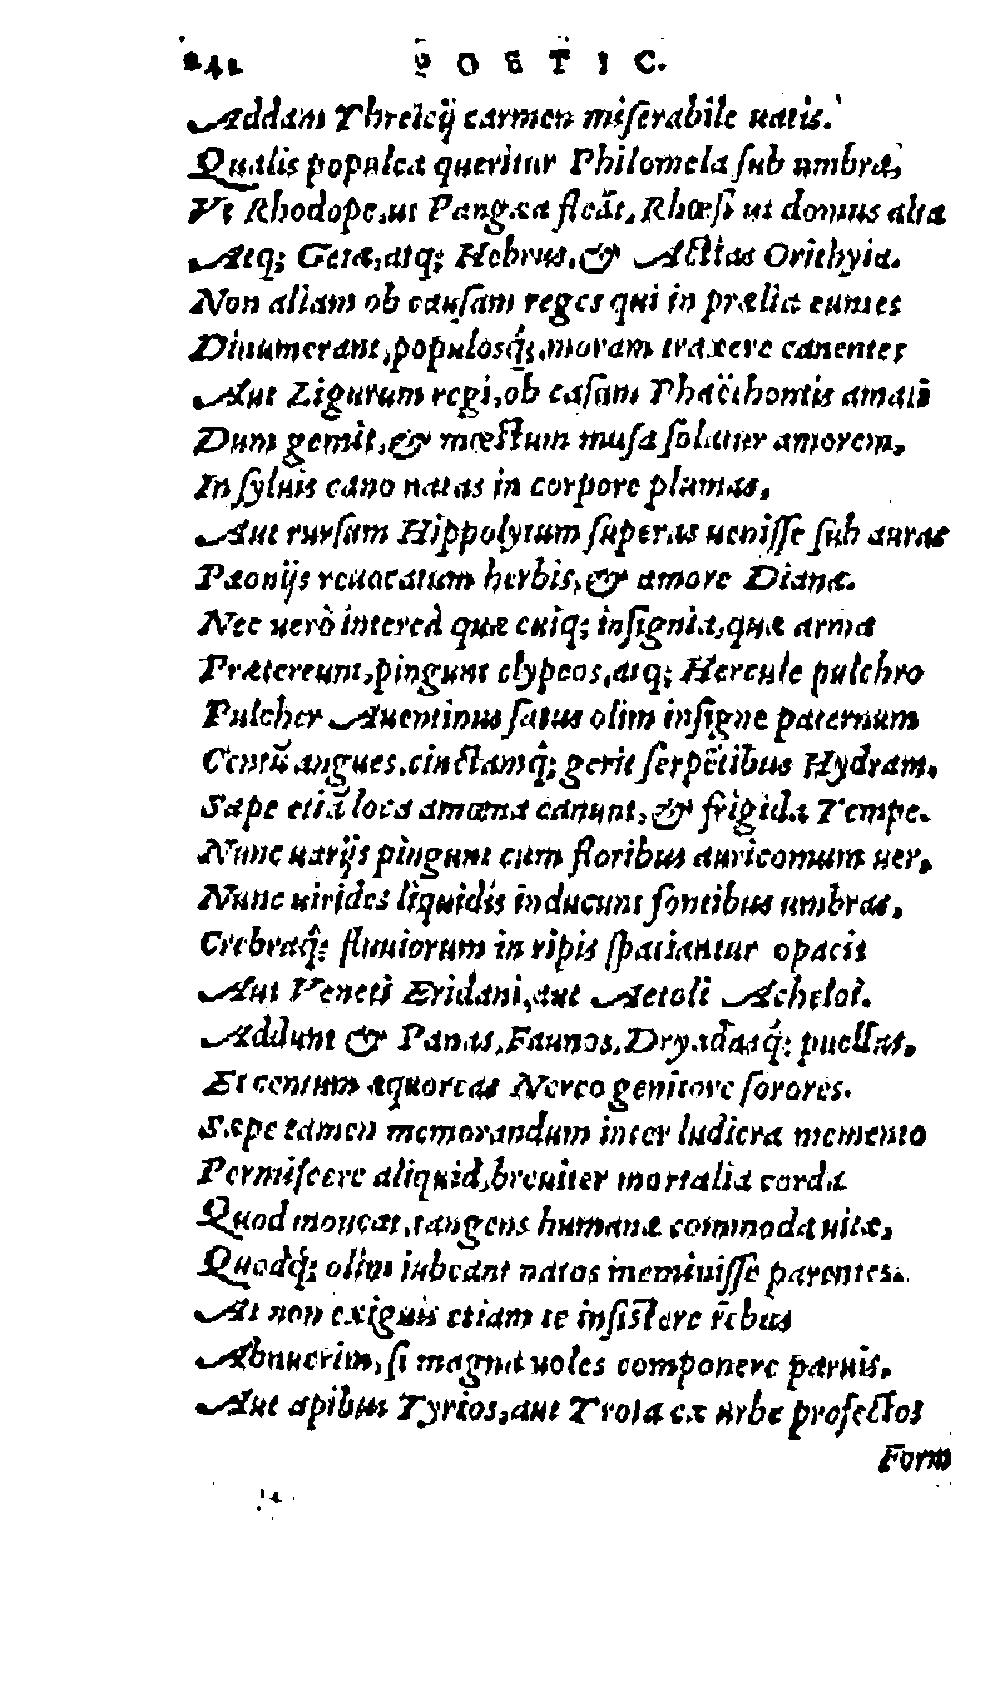 242 POETIC.
Addam Threicij carmen miserabile uatis.
Qualis populea queritur Philomela sub umbra,
Vt Rhodope, ut Pangæa fleãt, Rhœsi ut domus alta
Atq; Getæ, atq; Hebrus, & Actias Orithyia.
Non aliam ob causam reges qui in prælia euntes
Dinumerant, populosq́;, moram traxere canentes
Aut Ligurum regi, ob casum Phaëthontis amati
Dum gemit, & mœstum musa solatur amorem,
In syluis cano natas in corpore plumas,
Aut rursum Hippolytum superas uenisse sub auras
Pæonijs reuocatum herbis, & amore Dianæ.
Nec uerò intereà quæ cuiq; insignia, quæ arma
Prætereunt, pingunt clypeos, atq; Hercule pulchro
Pulcher Auentinus satus olim insigne paternum
Centũ angues, cinctamq́; gerit serpẽtibus Hydram.
Sæpe etiã loca amœna canunt, & frigida Tempe.
Nunc uarijs pingunt cum floribus auricomum uer,
Nunc uirides liquidis inducunt fontibus umbras,
Crebraq́; fluuiorum in ripis spatiantur opacis
Aut Veneti Eridani, aut Aetoli Acheloi.
Addunt & Panas, Faunos, Dryadasq́; puellas,
Et centum æquoreas Nereo genitore sorores.
Sæpe tamen memorandum inter ludicra memento
Permiscere aliquid, breuiter mortalia corda
Quod moueat, tangens humanæ commoda uitæ,
Quodq́; olim iubeant natos meminisse parentes.
At non exiguis etiam te insistere rebus
Abnuerim, si magna uoles componere paruis.
Aut apibus Tyrios, aut Troia ex urbe profectos
Form